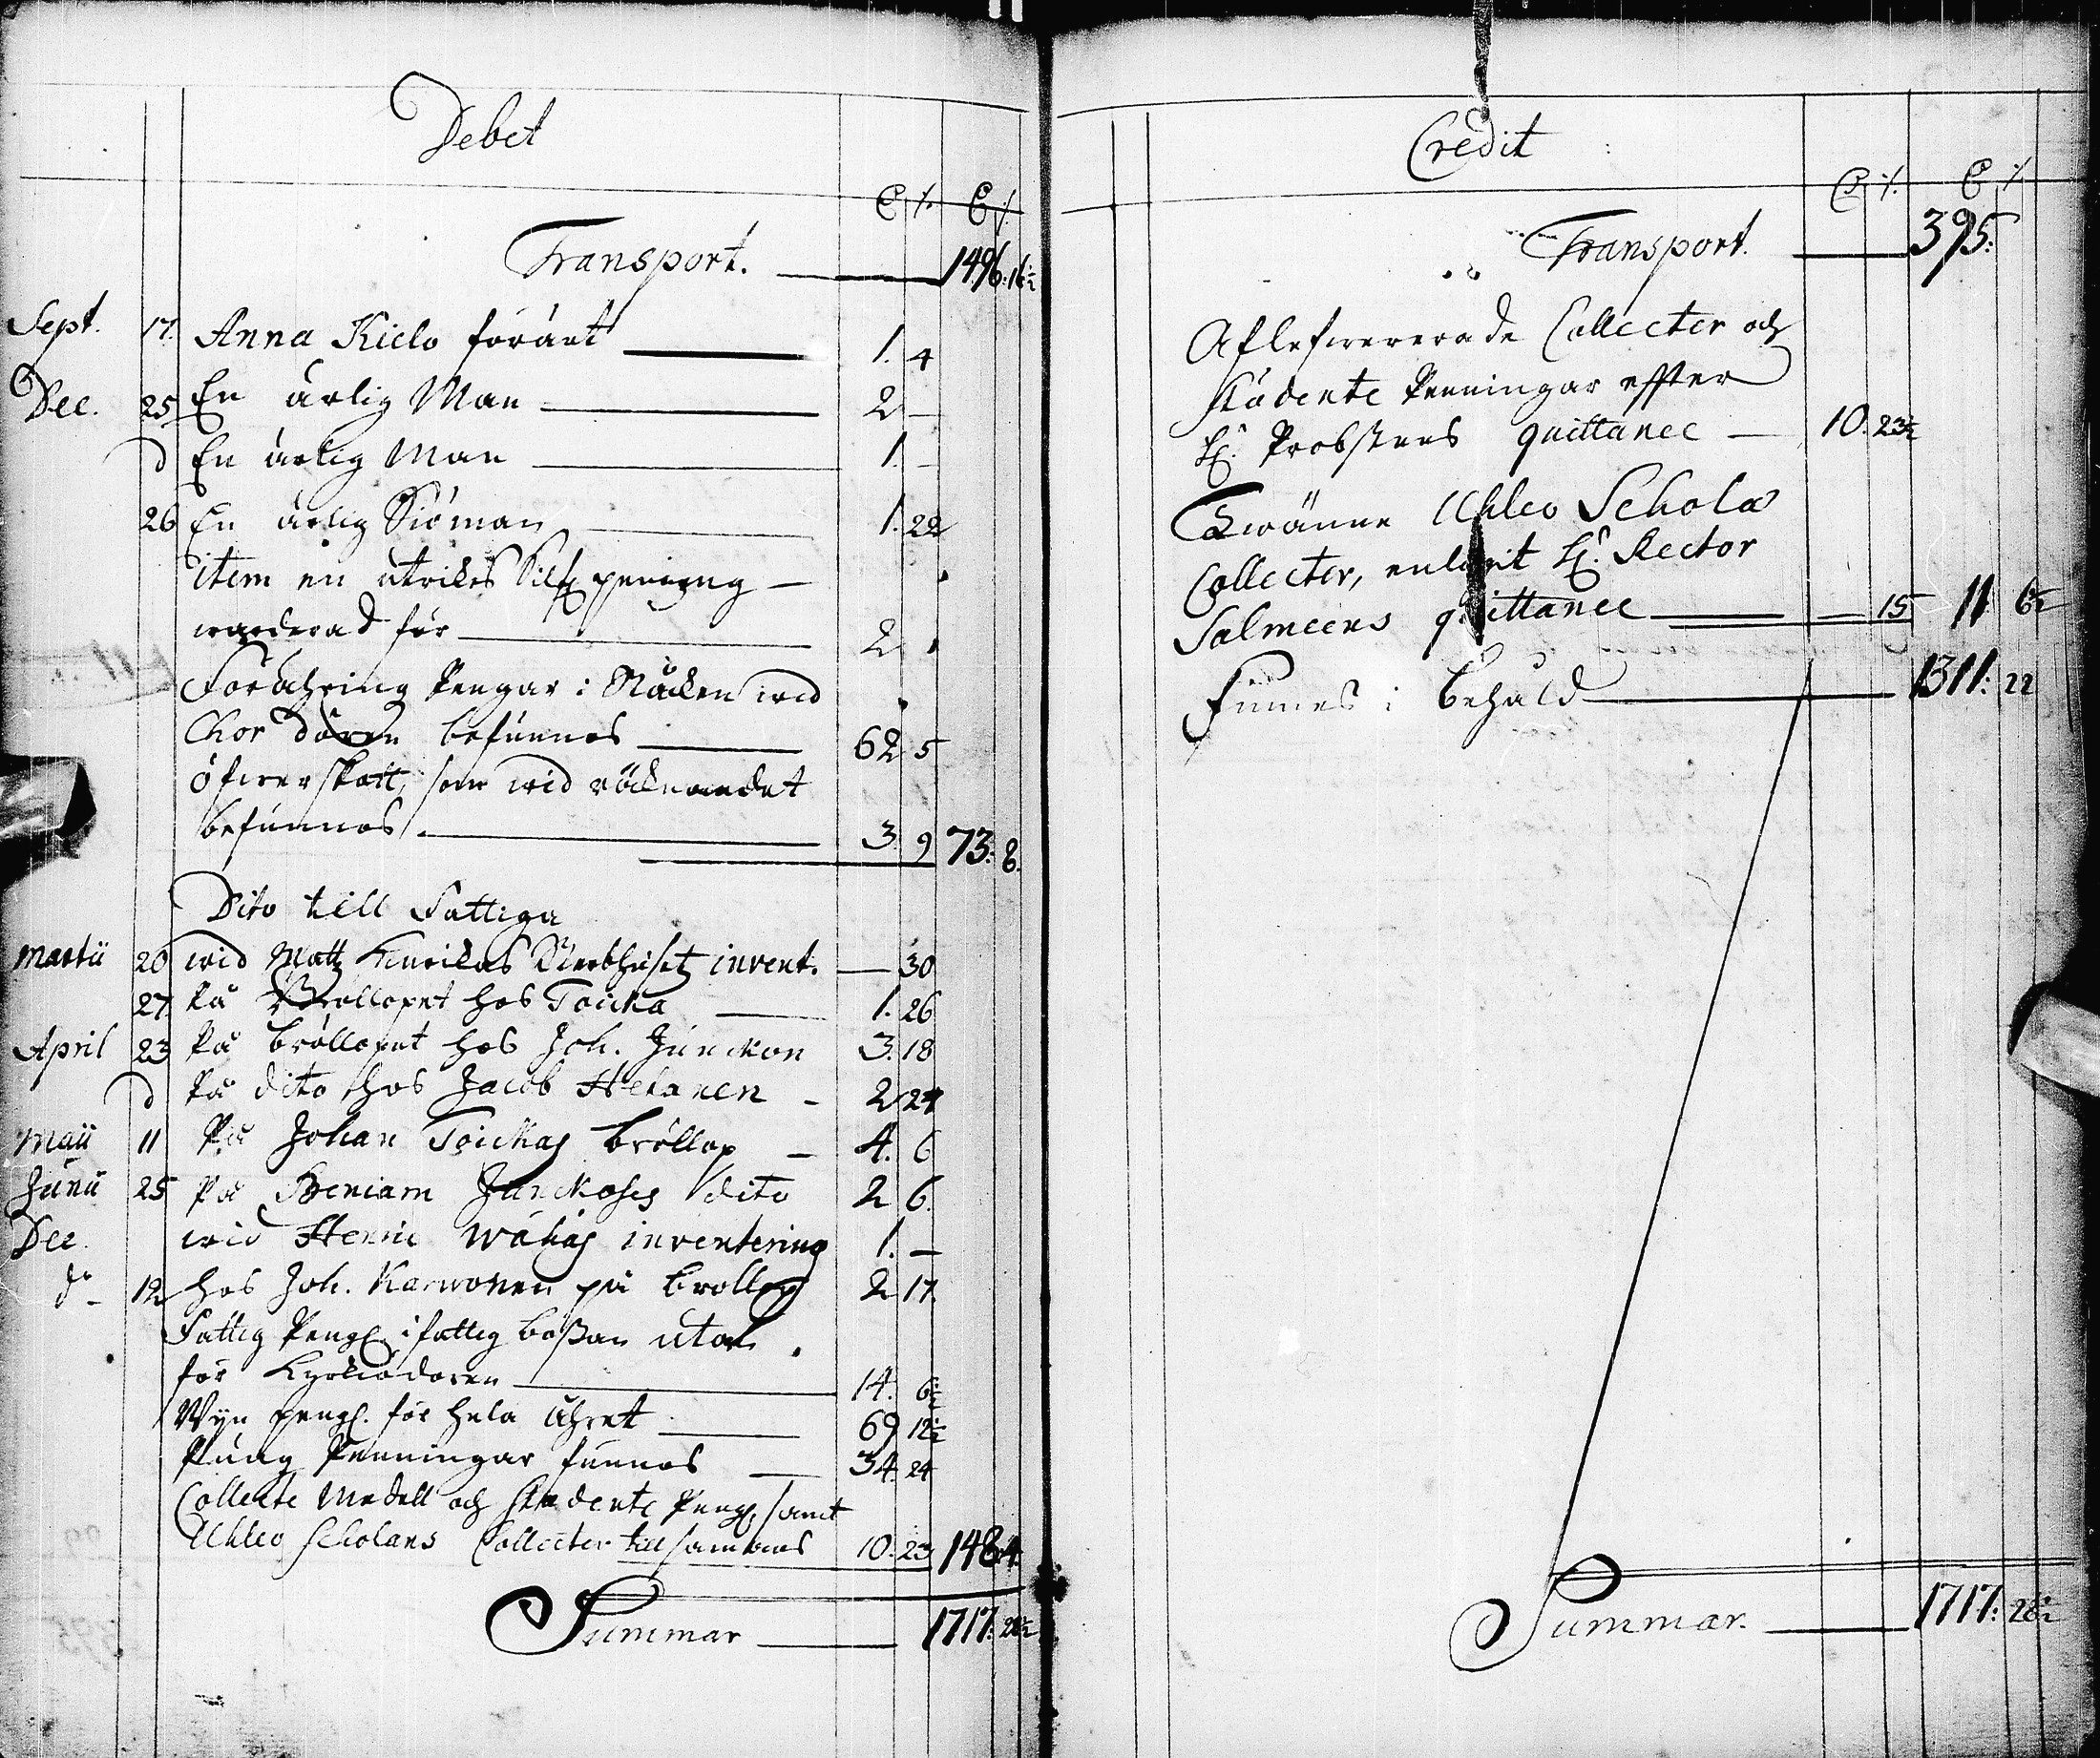 Debet
Transport. 1496: 16½
Sept. 17. Anna Kielo förärt 1. 4
Dec. 25 En ärlig Man 2 –
d En ärlig Man 1. –
26 En ärlig Siöman 1. 22
item en utrikes Silf penning –
warderad för 2
Förähring Pengar i Stäcken wid
Chor dören befunnos 62 5
öfwerskott, som wid räcknandet
befunnos. 3. 9 73: 8.
Dito till Fattiga
Martii 20 wid Matz Stervhusetz invent. — 30
27 På Bröllopet hos Toicka 1. 26
April 23 På bröllopet hos Joh. Junckon 3. 18
d På dito hos Jacob Hetanen – 2 24
Maii 11 På Johan Toickas bröllop – 4. 6
Junii 25 På Beniam Junckoses dito 2 6.
Dec. wid Henric Wähäs inventering 1. –
do – 12 hos Joh. Karwonen på bröllop 2 17.
Fattig Peng i fattig boßan utan
för Kyrkiodören 14. 6½
Wijn peng. för hela åhret 69 12½
Pung Penningar funnos 34. 24
Collecte Medell och Studente Peng samt
Uhleo Scholans Collecter tillsammans 10. 23 148: 4.
Summar 1717: 28½
Credit
Transport. 395:
Aflefwererade Collecter och
studente Penningar effter
H. Probstens quittance — 10. 23½
Twänne Uhleo Scholæ
Collecter, enligit H. Rector
Salmeens quittance — 15 11 6½
Finnes i behåld 1311: 22
Summar. 1717: 28½